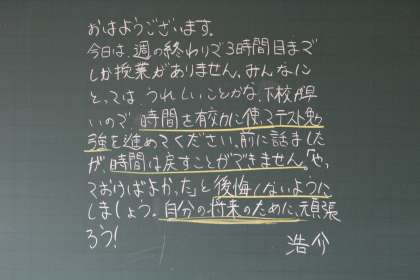 おはようございます。
今日は、週の終わりで3時間目まで
しか授業がありません。みんなに
とっては、うれしいことかな。下校が早
いので、時間を有効に使ってテスト勉
強を進めてください。前に話しました
が、時間は戻すことができません。「や
っておけばよかった」と後悔しないように
しましょう。自分の将来のために、頑張
ろう!
浩介